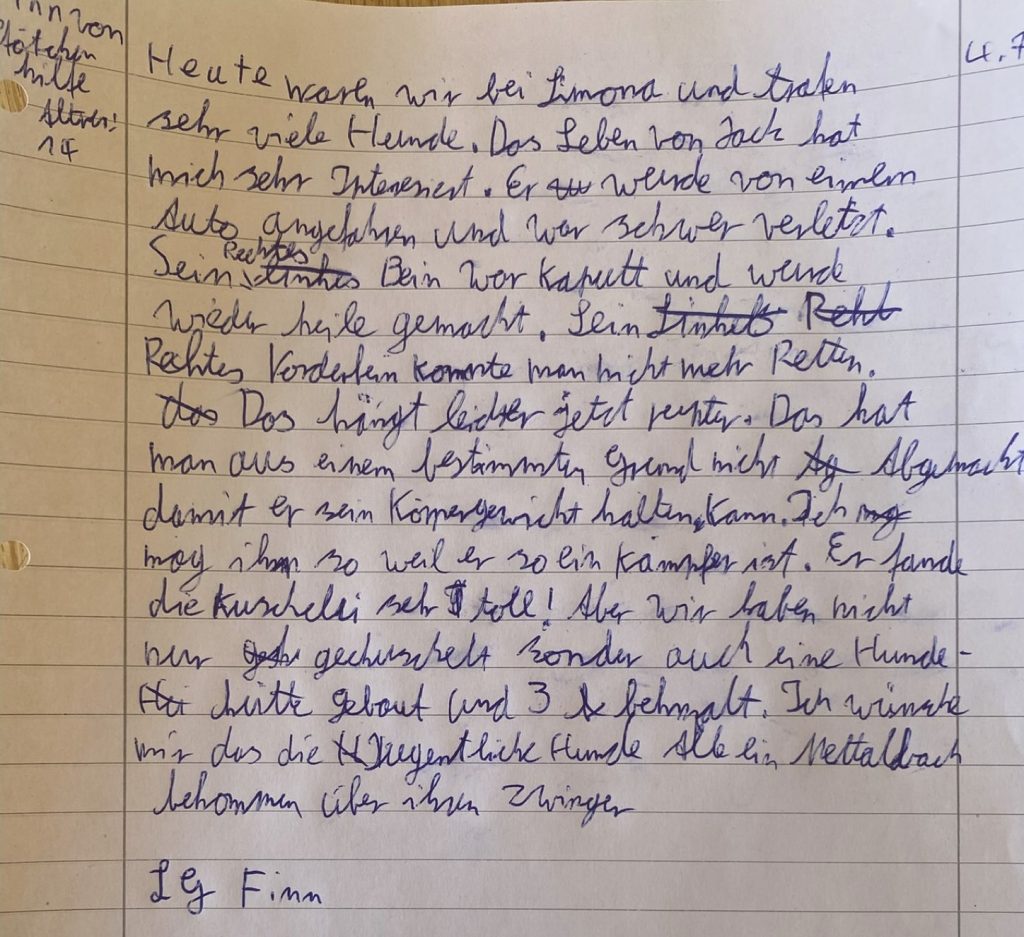 Finn von
Pfötchen
hilfe
Alter:
14
4.7
Heute waren wir bei Simona und trafen
sehr viele Hunde. Das Leben von Jack hat
mich sehr Interesiert. Er wurde von einem
Auto angefahren und war schwer verletzt.
Sein Rechtes Bein war kaputt und wurde
wieder heile gemacht. Sein
Rechtes Vorderbein konnte man nicht mehr Retten.
Das hängt leider jetzt
Das hat
man aus einem bestimmten Grund nicht Abgemacht
damit er sein Körpergewicht halten kann. Ich
mag ihn so weil er so ein Kämpfer ist. Er fande
die Kuschelei sehr toll! Aber wir haben nicht
nur gechuschelt sonder auch eine Hunde-
hütte gebaut und 3 behmalt. Ich wünsche
mir das die Jugentliche Hunde Alle ein Mettaldach
bekommen über ihren Zwinger
LG Finn